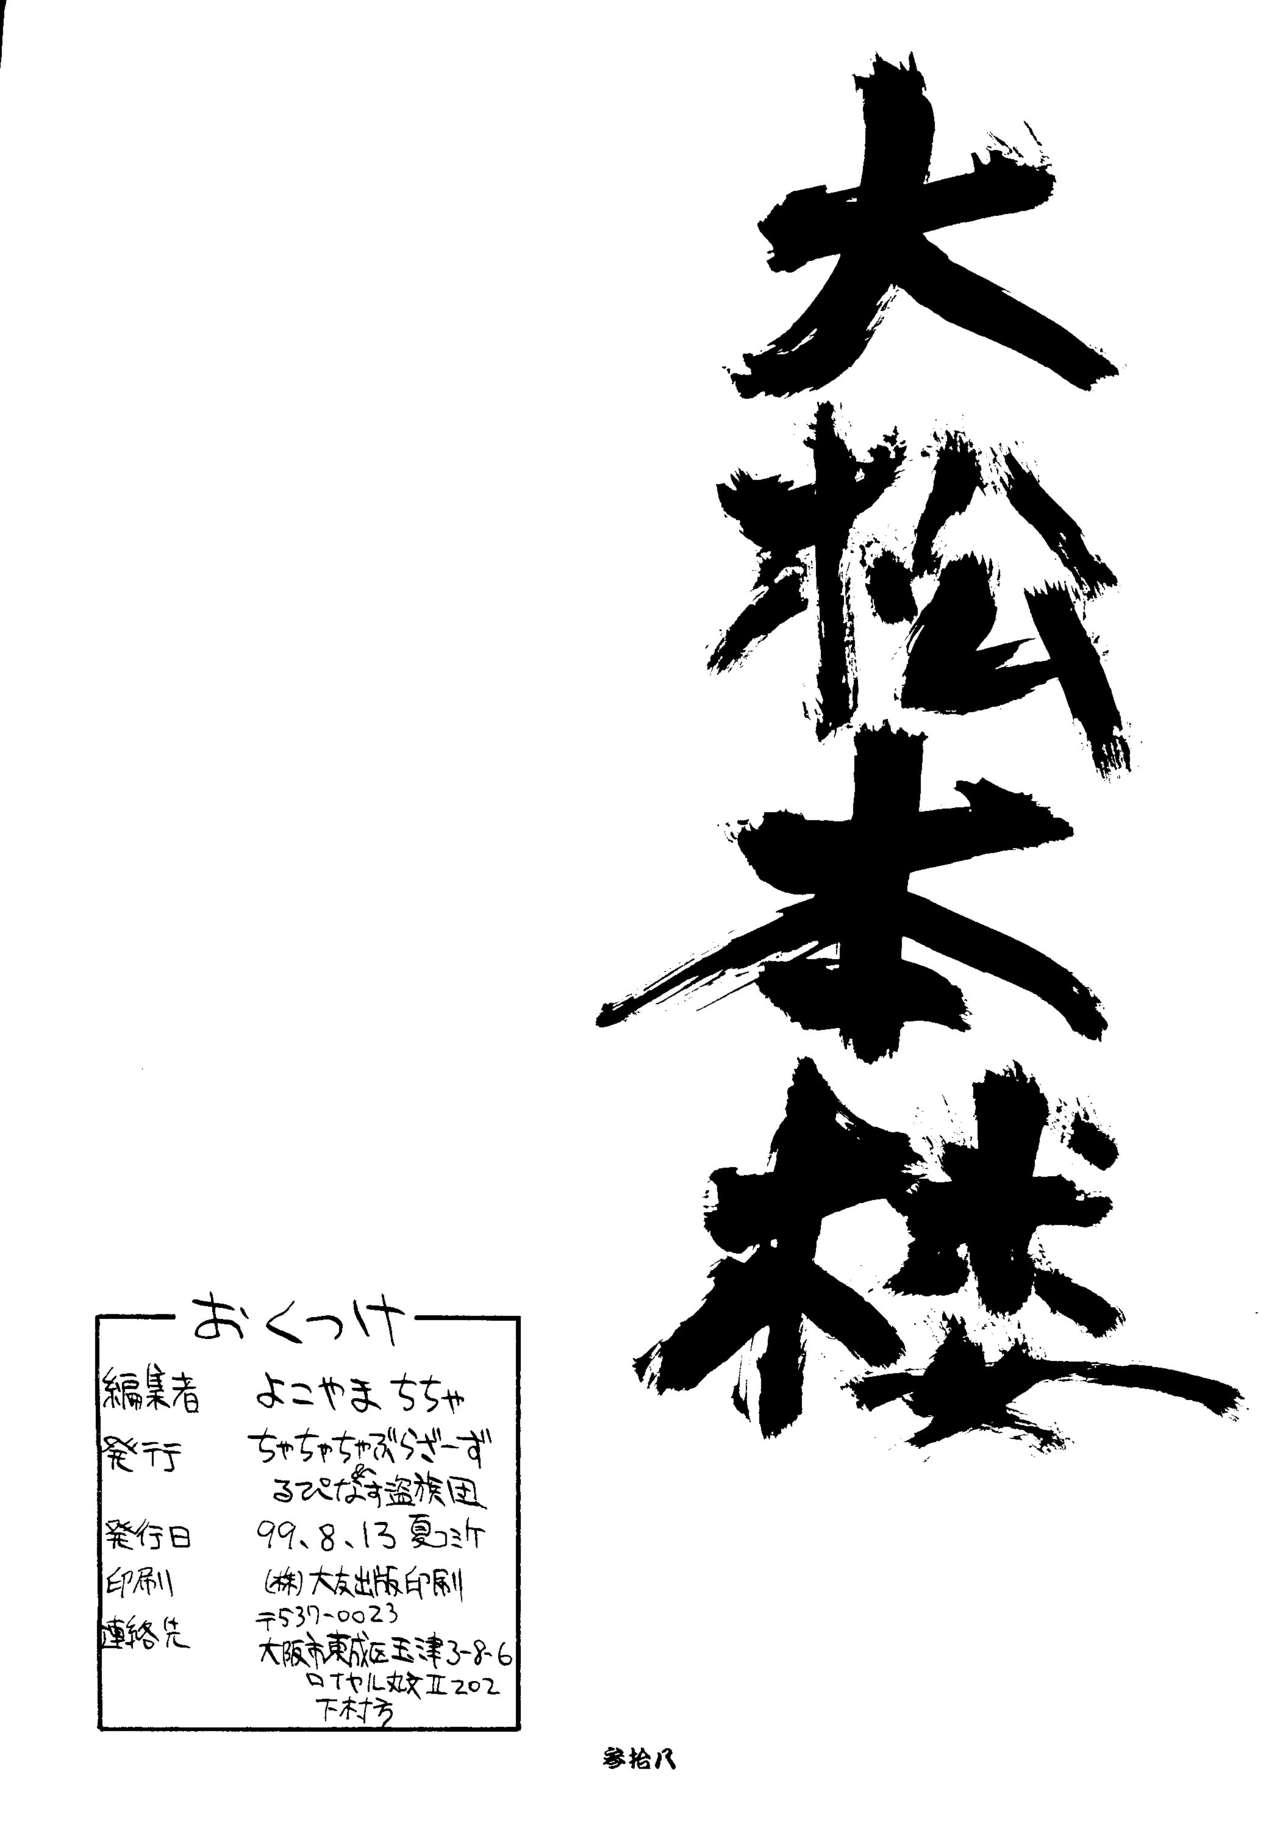 大松本楼
おくづけ
編集者 よこやまちちゃ
発行 ちゃちゃちゃぶらざーず
&
るぴなす盗族団
発行日 99.8.13 夏コミケ
印刷 (株)大友出版印刷
連絡先 〒537-0023
大阪市東成区玉津3-8-6
ロイヤル丸文Ⅱ202
下村方
参拾八